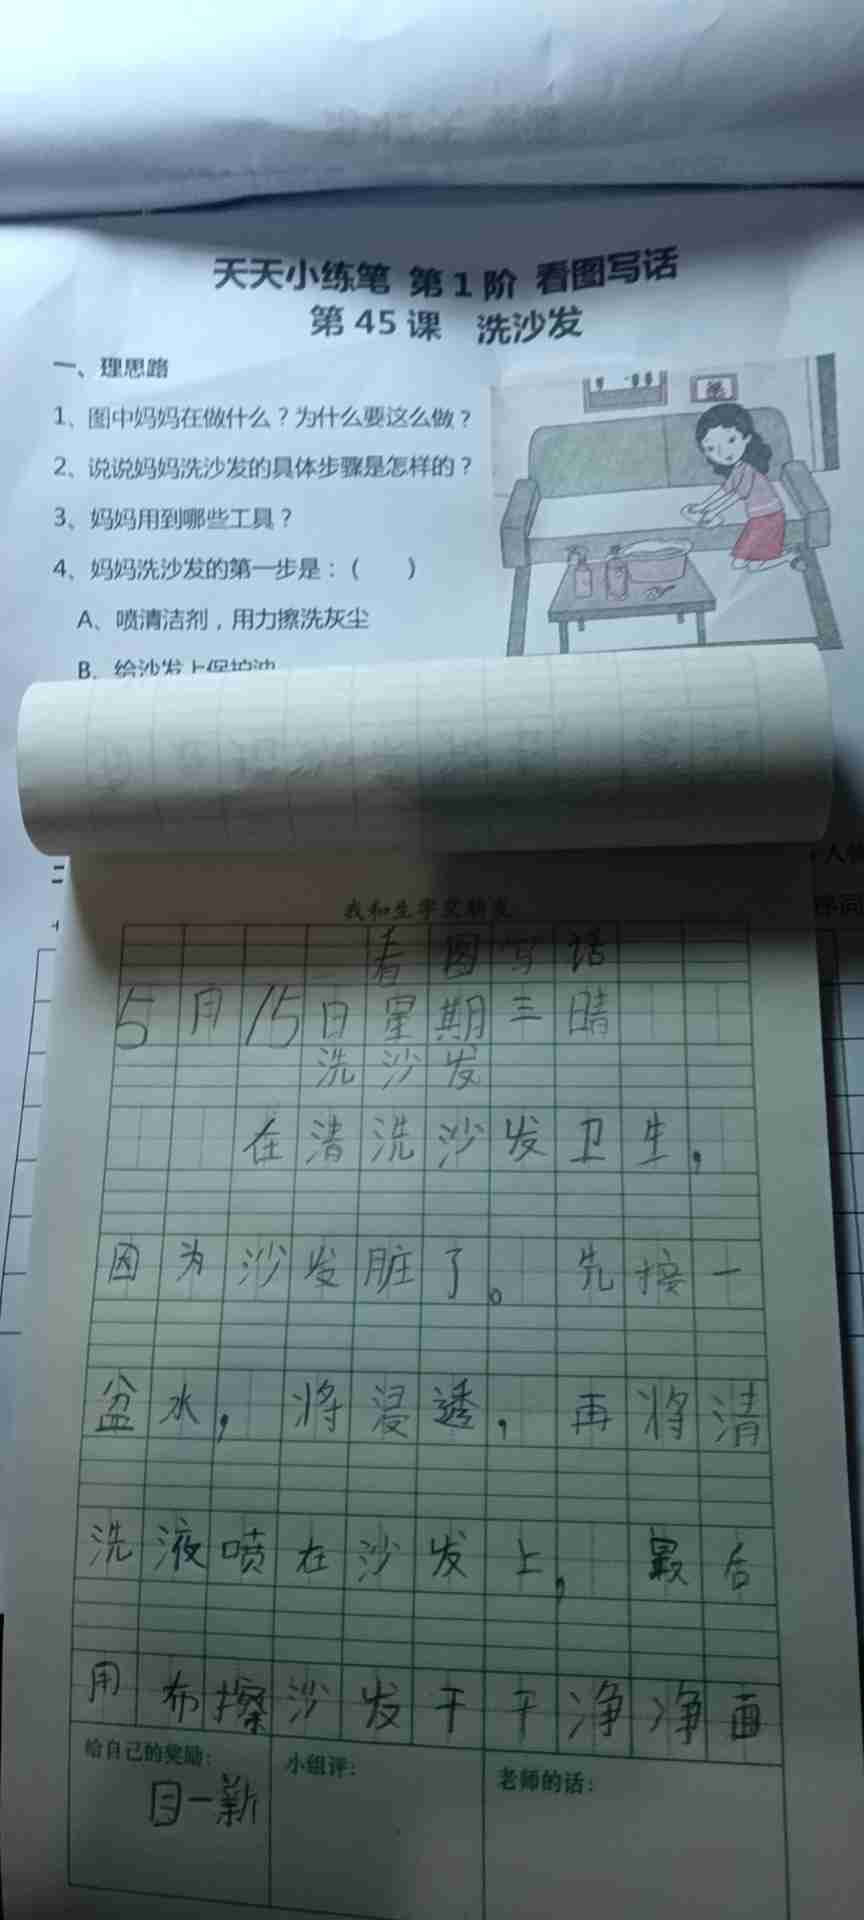 天天小练笔 第1阶 看图写话
第45课 洗沙发
一、理思路
1、图中妈妈在做什么？为什么要这么做？
2、说说妈妈洗沙发的具体步骤是怎样的？
3、妈妈用到哪些工具？
4、妈妈洗沙发的第一步是：（ ）
A、喷清洁剂，用力擦洗灰尘
B、给沙发上保护油
我和生字交朋友
看图写话
5月15日星期三晴
洗沙发
在清洗沙发卫生，
因为沙发脏了。先接一
盆水，将浸透，再将清
洗液喷在沙发上，最后
用布擦沙发干干净净面
给自己的奖励：
小组评：
老师的话：
目一新